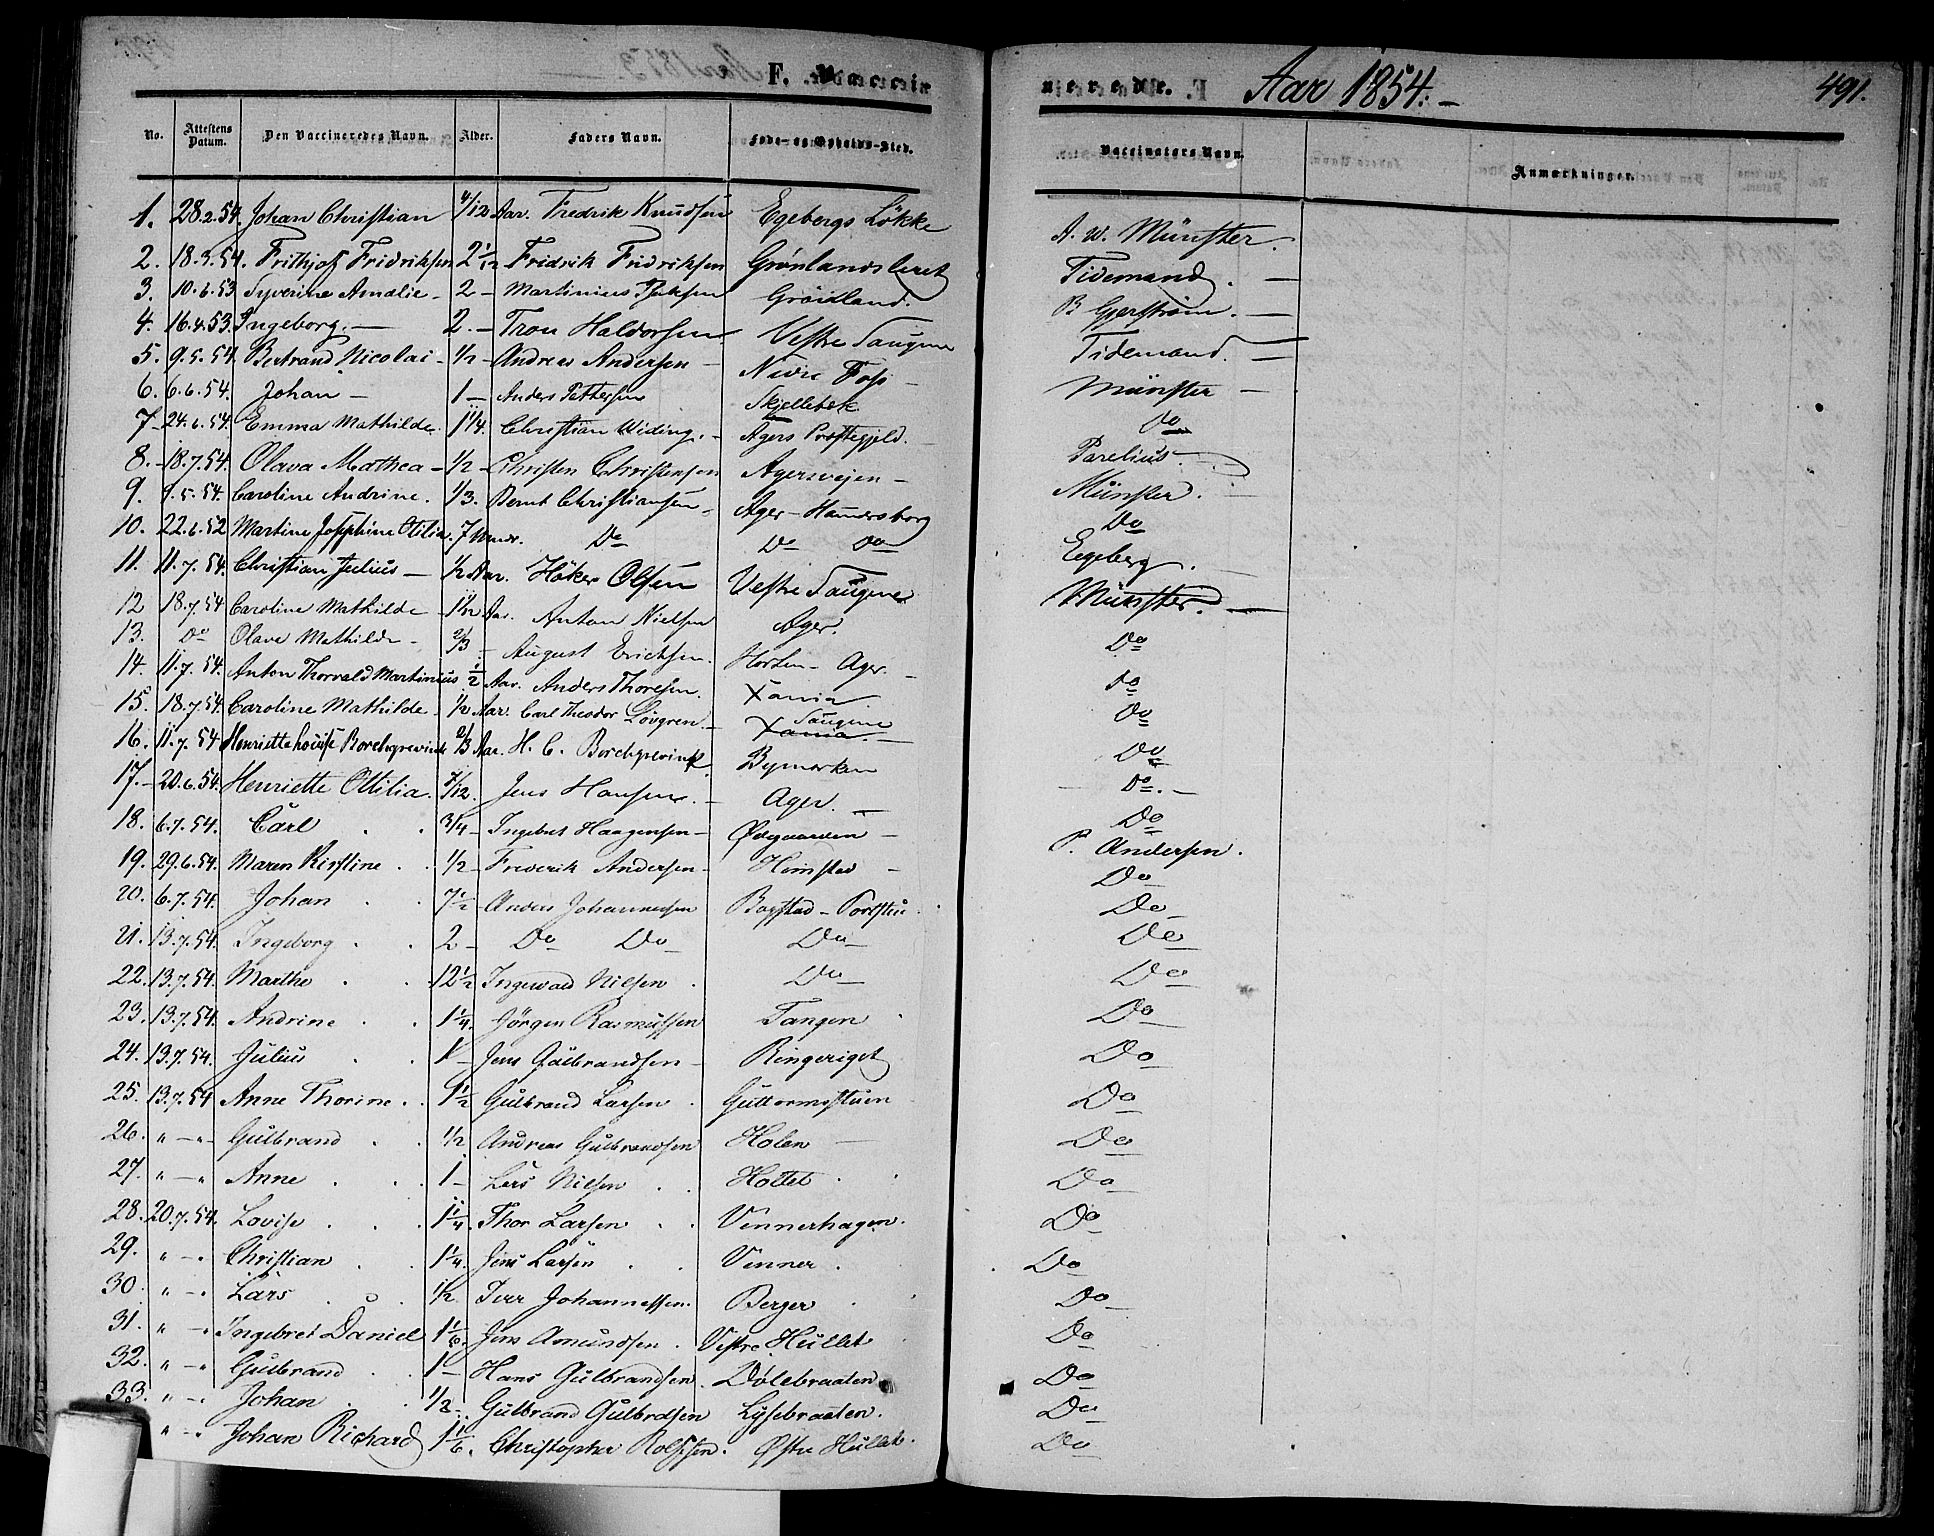 F. Vaccinerede. Aar 1854. 491.
No. Attestens Datum. Den Vaccineredes Navn. Alder. Faders Navn. Føde- og Opholds-Sted. Vaccinators Navn. Anmærkninger.
1. 28.2.54. Johan Christian 4/12 Aar. Fredrik Knudsen Egebergs Løkke A. W. Münster.
2. 18.3.54. Frithjof Fridriksen 2 1/12 Fridrik Fridriksen Grønlandsleret Tidemand.
3. 10.6.53 Syverine Amalie 2 - Martinius Grönland. B Gjerström.
4. 16.4.53. Ingeborg. 2. - Tron Haldorsen Vestre Saugene Tidemand.
5. 9.5.54. Bertrand Nicolai 1/2 - Andreas Andersen Nedre Foss Münster
6. 6.6.54. Johan - 1 - Anders Pettersen Skjellebek Do
7 - 24.6.54. Emma Mathilde. 1 1/4. Christian Widing. Agers Præstegjeld. Parelius.
8. - 18.7.54. Olava Mathea - 1/2 - Christen Christensen Agersvejen - Münster.
9. 9.5.54. Caroline Andrine. 1/3. Bernt Christiansen Ager - Hamersborg Do
10. 22.6.52 Martine Josephine Otilia. 7 Do Do Do Egeberg.
11. 11.7.54. Christian Julius - 1/2 Aar. Höker Olsen Vestre Saugene Münster.
12 18.7.54 Caroline Mathilde - 1 1/2 Aar. Anton Nielsen Ager. Do
13. Do Olave Mathilde - 2/3 - August Erichsen. Horten - Ager. Do
14. 11.7.54. Anton Thorvald Martinius. 1/2 Aar. Anders Thoresen. Xania Do
15. 18.7.54. Caroline Mathilde - 1/2 Aar. Carl Theodor Lövgren. Saugene Xania. Do
16. 11.7.54 Henriette Louise Borchgrevink 2/3 Aar. H. C. Borchgrevink Bymarken Do.
17. - 20.6.54. Henriette Ottilia. 7/12. Jens Hansen. Ager. Do
18. 6.7.54. Carl 3/4 - Ingebret Haagensen - Ødegaarden - P. Andersen.
19. 29.6.54. Maren Kirstine 1/2 - Frederik Andersen - Do
20. 6.7.54. Johan 7 1/2 Anders Johannesen Bogstad - Do
21. 13.7.54. Ingeborg 2 - Do Do Do Do
22. 13.7.54. Marthe 12 1/2 Ingevald Nilsen Do Do
23. 13.7.54. Andrine 1 1/4. Jörgen Rasmussen Tangen Do
24. 13.7.54. Julius 1 - Jens Gulbrandsen - Ringeriget Do
25. 13.7.54 Anne Thorine. 9 1/2 Gulbrand Larsen Guttormstuen Do
26. " - " - Gulbrand 1/2 Andreas Gulbrandsen Holen Do
27. " - " Anne 1 - Lars Nilsen Holtet Do
28. 20.7.54. Lovise 1 1/4. Thor Larsen Vennerhagen. Do
29. " - " Christian 1 1/4. Jens Larsen Venner. Do
30. " - " Lars 1/2. Iver Johannessen. Berger Do
31. " - " Ingebret Daniel 1 1/6. Jens Amundsen. Vestre Hullet Do
32. " - " Gulbrand 1 - Hans Gulbrandsen. Dölebraaten Do
33. " - " Johan 1/2 - Gulbrand Lysebraaten. Do
" - " Johan Richard 1 1/6. Christopher Østre Hullet. Do